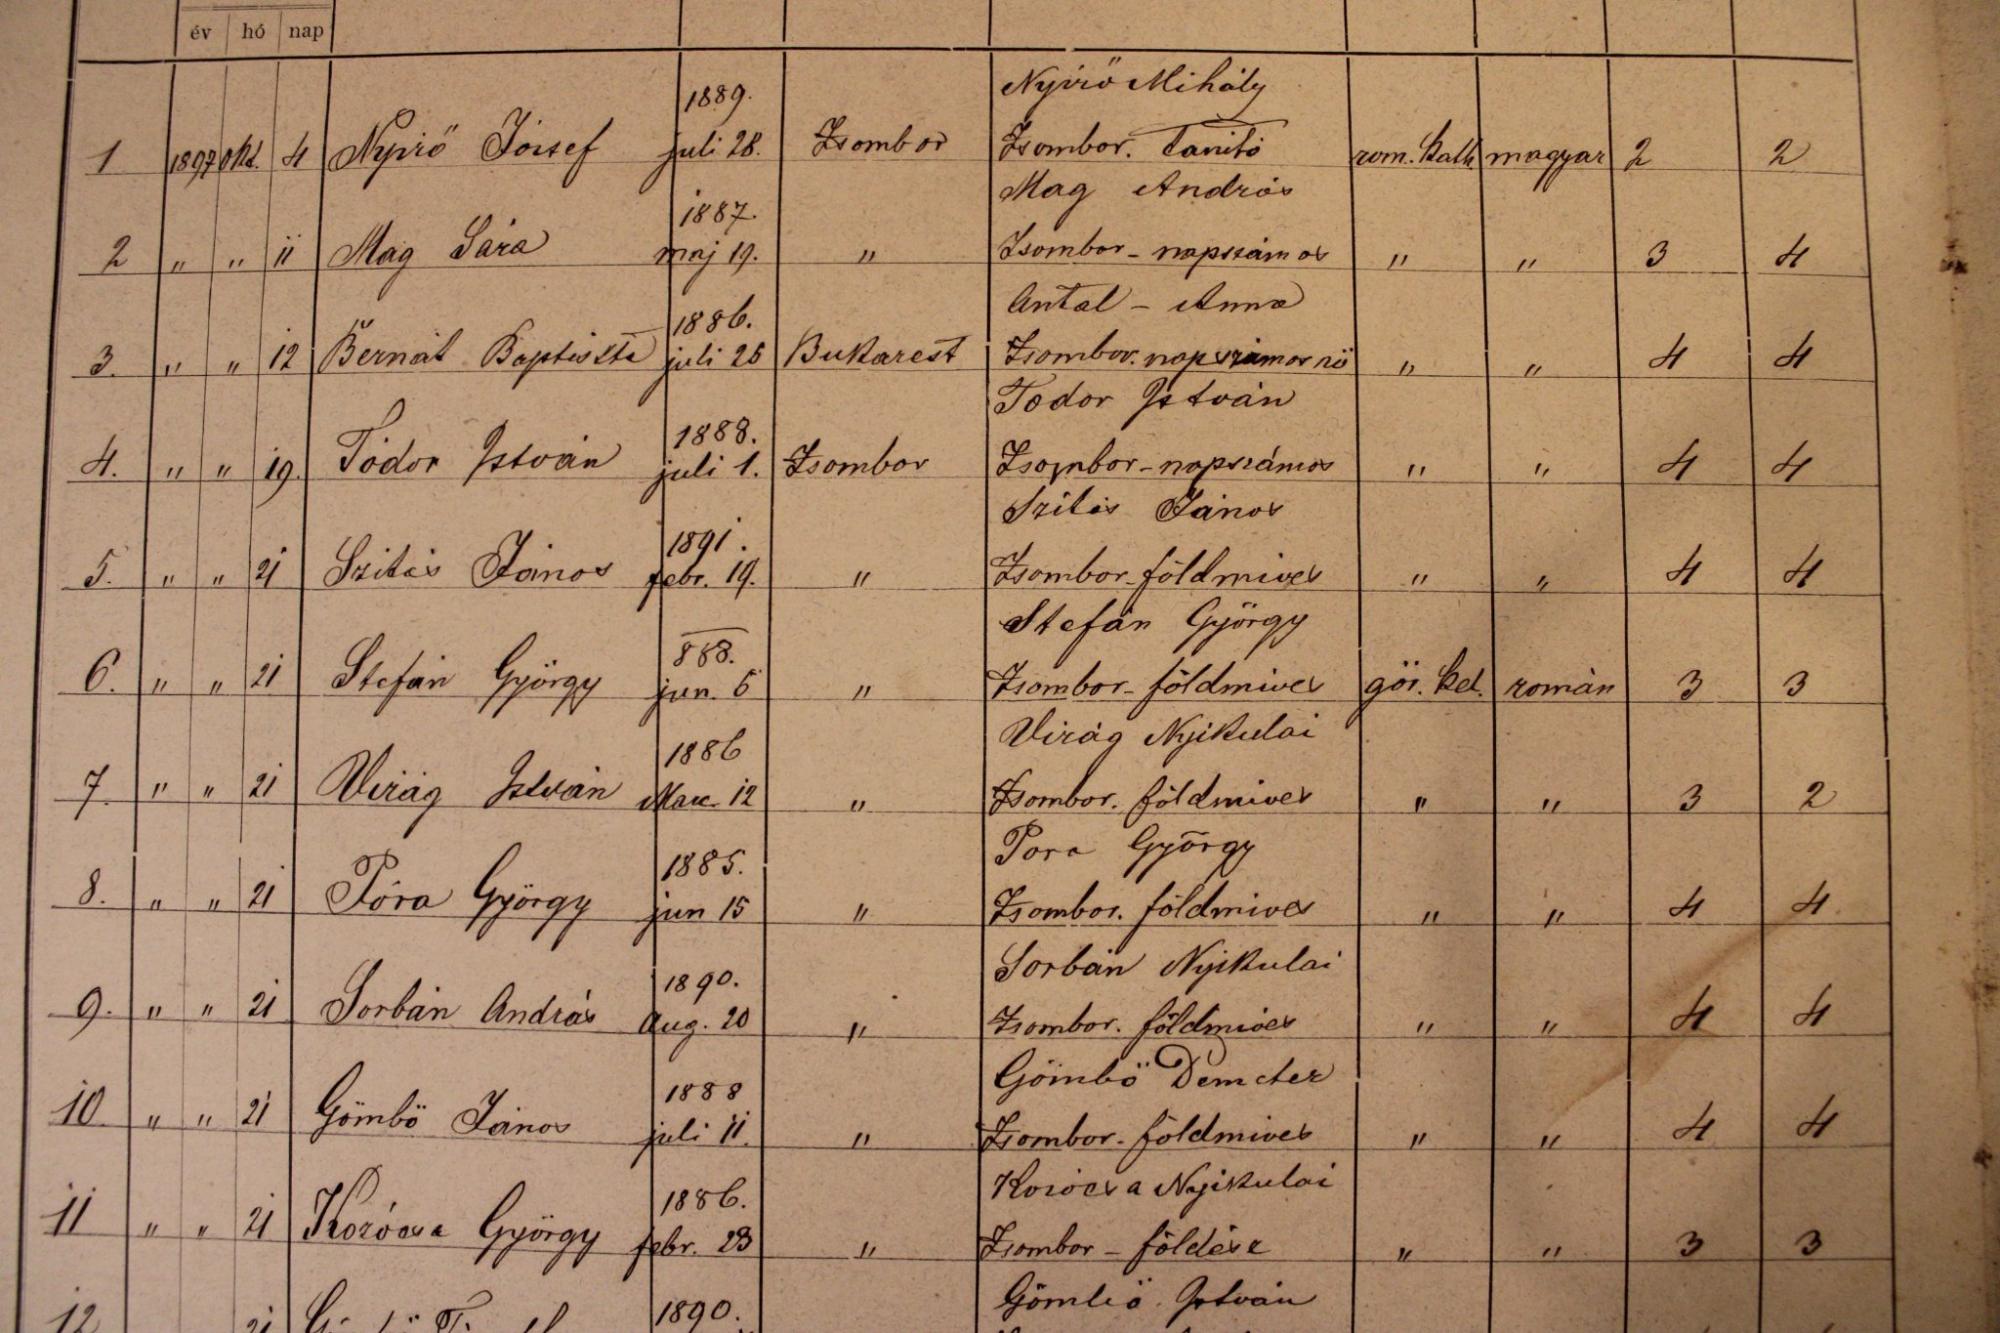 év hó nap
1889. Nyirő Mihály
1 1897 Okt. 4 Nyirő József juli 28. Zsombor Zsombor. Tanitó rom. kath. magyar 2 2
1887. Mag András
2 " " 11 Mag Sára maj 19. " Zsombor - napszámos " " 3 4
1886. Antal - Anna
3. " " 12 Bernát Baptiszta juli 25 Bukarest Zsombor. napszámos nő " " 4 4
1888. Todor István
4. " " 19. Tódor István juli 1. Zsombor Zsombor - napszámos " " 4 4
1891. Szitás János
5. " " 21 Szitás János febr. 19. " Zsombor - földmives " " 4 4
888. Stefán György
6. " " 21 Stefán György jun. 5 " Zsombor - földmives gör. kel. román 3 3
1886 Virág Nyikulai
7. " " 21 Virág István Marc. 12 " Zsombor. földmives " " 3 2
1885. Pora György
8. " " 21 Póra György jun 15 " Zsombor. földmives " " 4 4
1890. Sorbán Nyikulai
9. " " 21 Sorbán András Aug. 20 " Zsombor. földmives " " 4 4
1888 Gömbö Demeter
10 " " 21 Gömbö János juli 11. " Zsombor - földmives " " 4 4
1886. Nyikulai
11 " " 21 György febr. 23 " Zsombor - földész " " 3 3
1890. István
12 21